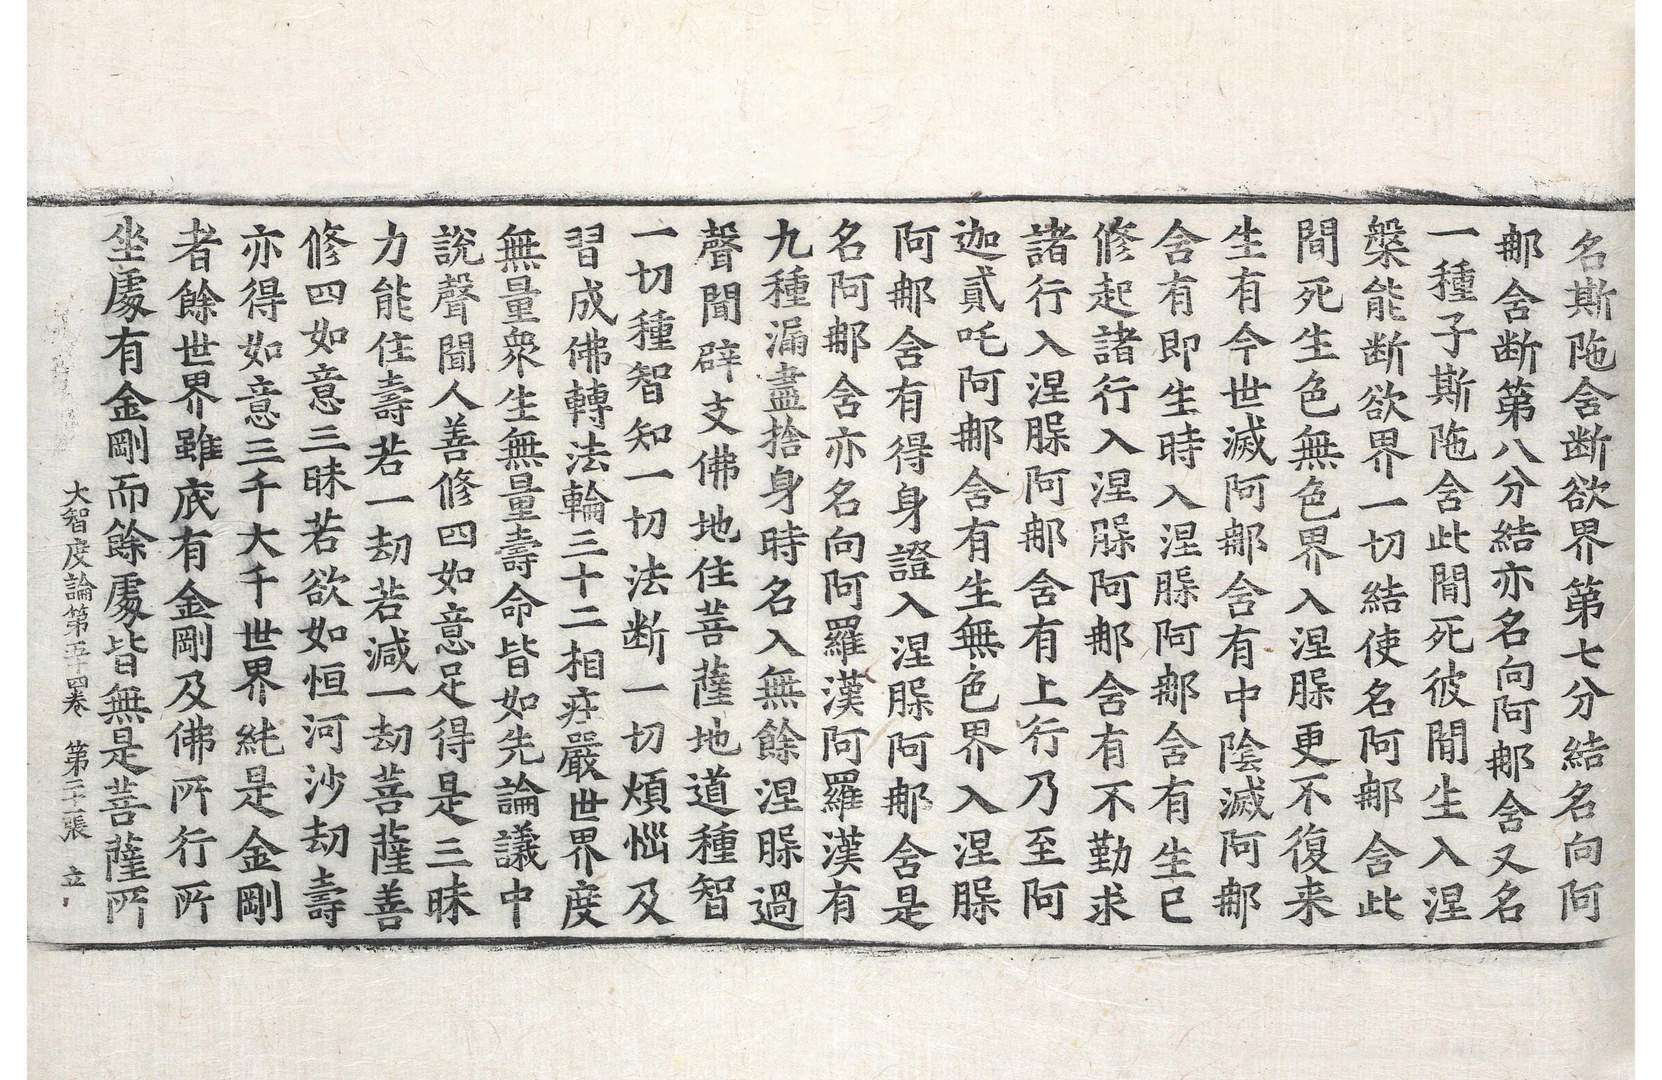 名斯陁含断欲界第七分結名向阿
那含断第八分結亦名向阿那含又名
一種子斯陁含此間死彼間生入涅
槃能断欲界一切結使名阿那含此
間死生色無色界入涅槃更不復来
生有今世滅阿那含有中陰滅阿那
含有即生時入涅槃阿那含有生已
修起諸行入涅槃阿那含有不勤求
諸行入涅槃阿那含有上行乃至阿
迦貳吒阿那含有生無色界入涅槃
阿那含有得身證入涅槃阿那含是
名阿那含亦名向阿羅漢阿羅漢有
九種漏盡捨身時名入無餘涅槃過
聲聞辟支佛地住菩薩地道種智
一切種智知一切法断一切煩惱及
習成佛轉法輪三十二相莊嚴世界度
無量衆生無量壽命皆如先論議中
說聲聞人善修四如意足得是三昧
力能住壽若一劫若減一劫菩薩善
修四如意三昧若欲如恒河沙劫壽
亦得如意三千大千世界純是金剛
者餘世界雖底有金剛及佛所行所
坐處有金剛而餘處皆無是菩薩所
大智度論第五十四卷 第二十張 立